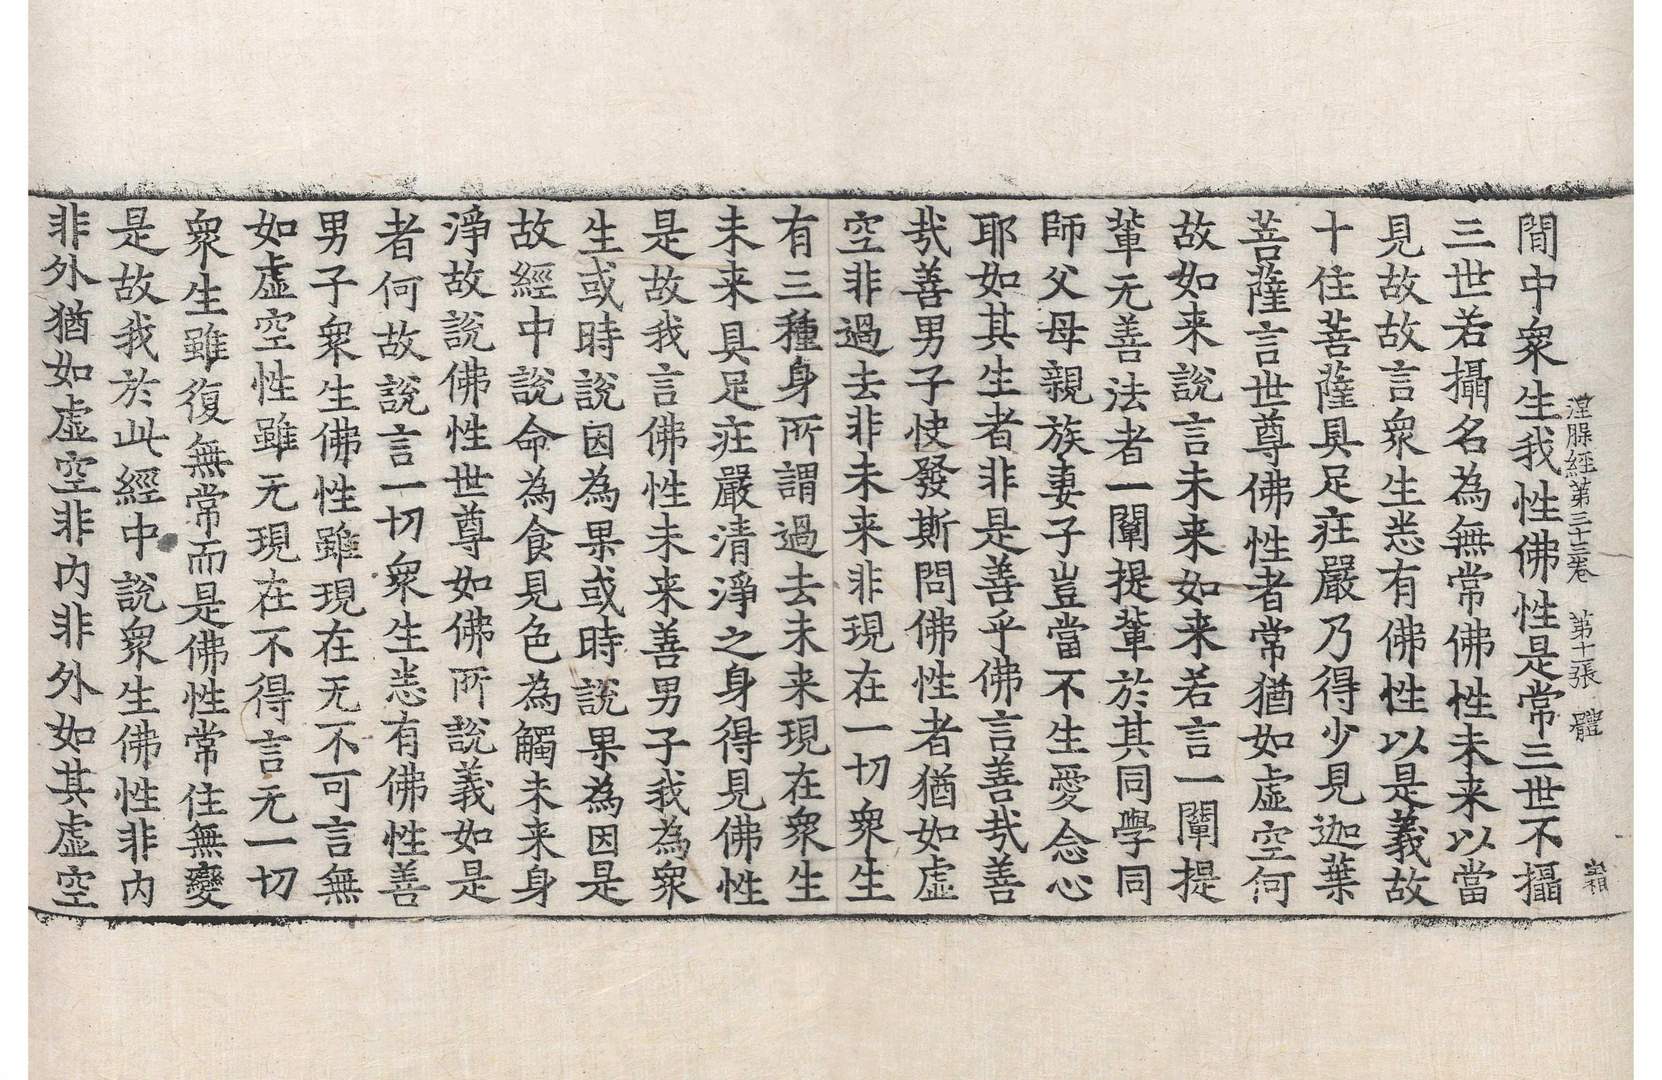 涅槃經第三十三卷 第十張 體
間中衆生我性佛性是常三世不攝
三世若攝名為無常佛性未来以當
見故故言衆生悉有佛性以是義故
十住菩薩具足庄嚴乃得少見迦葉
菩薩言世尊佛性者常猶如虛空何
故如来說言未来如来若言一闡提
輩无善法者一闡提輩於其同學同
師父母親族妻子豈當不生愛念心
耶如其生者非是善乎佛言善哉善
哉善男子快發斯問佛性者猶如虛
空非過去非未来非現在一切衆生
有三種身所謂過去未来現在衆生
未来具足庄嚴清淨之身得見佛性
是故我言佛性未来善男子我為衆
生或時說因為果或時說果為因是
故經中說命為食見色為觸未来身
淨故說佛性世尊如佛所說義如是
者何故說言一切衆生悉有佛性善
男子衆生佛性雖現在无不可言無
如虛空性雖无現在不得言无一切
衆生雖復無常而是佛性常住無變
是故我於此經中說衆生佛性非内
非外猶如虛空非内非外如其虛空